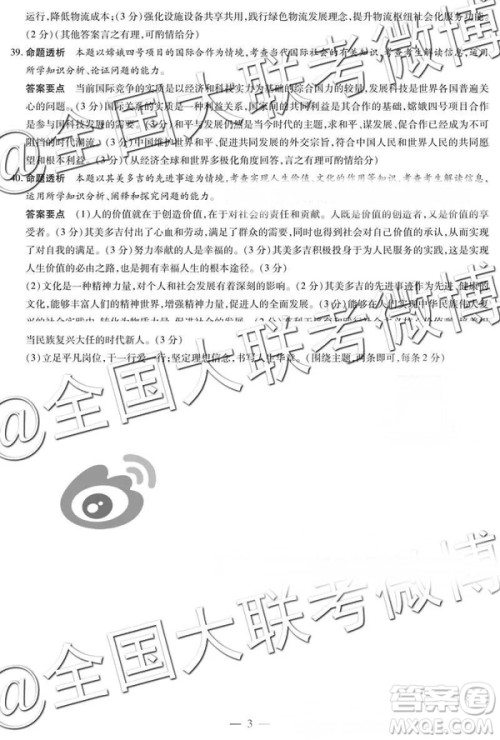 运行,降低物流成本;(3 分)强化设施设备共享共用,践行绿色物流发展理念,提升物流枢纽社会化服务功能。
(2 分)(其他答案言之有理,可酌情给分)
39. 命题透析 本题以嫦娥四号项目的国际合作为情境,考查当代国际社会的有关知识,考查考生解读信息,运
用所学知识分析、论证问题的能力。
答案要点 当前国际竞争的实质是以经济和科技实力为基础的综合国力的较量,发展科技是世界各国普遍关
心的问题。(3 分)国际关系的实质是一种利益关系,国家间的共同利益是其合作的基础,嫦娥四号项目合作
是参与国科技发展的需要。(3 分)和平与发展是当今时代的主题,求和平、谋发展、促合作已成为不可
阻挡的时代潮流。(3 分)中国维护世界和平、促进共同发展的外交宗旨,符合中国人民和世界人民的共同愿
望和根本利益。(3 分)(从经济全球和世界多极化角度回答,言之有理可酌情给分)
40. 命题透析 本题以其美多吉的先进事迹为情境,考查实现人生价值、文化的作用等知识,考查考生解读信息,
运用所学知识分析、阐释和探究问题的能力。
答案要点 (1)人的价值就在于创造价值,在于对社会的责任和贡献。人既是价值的创造者,又是价值的享
受者。(3 分)
对自我的发展,满足了人民群众的需要,实现了人生价值。(3 分)其美多吉积极投身于为人民服务的实践,这是实现
人生价值的必由之路,也是拥有幸福人生的根本途径。(3 分)
(2)文化是一种精神力量,对人的发展和社会进步有着深刻的影响。(2 分)其美多吉先进事迹
文化,能够丰富人们的精神世界,增强精神力量,
当民族复兴大任的时代新人。(3 分)
(3)立足平凡岗位,干一行爱一行;坚定理想信念,书写人生华章。(围绕主题,两条即可,每条 2 分)
@全国大联考微博
@全国大联考微博
@全国大联考微博
— 3 —
答案圈
MXQE.COM